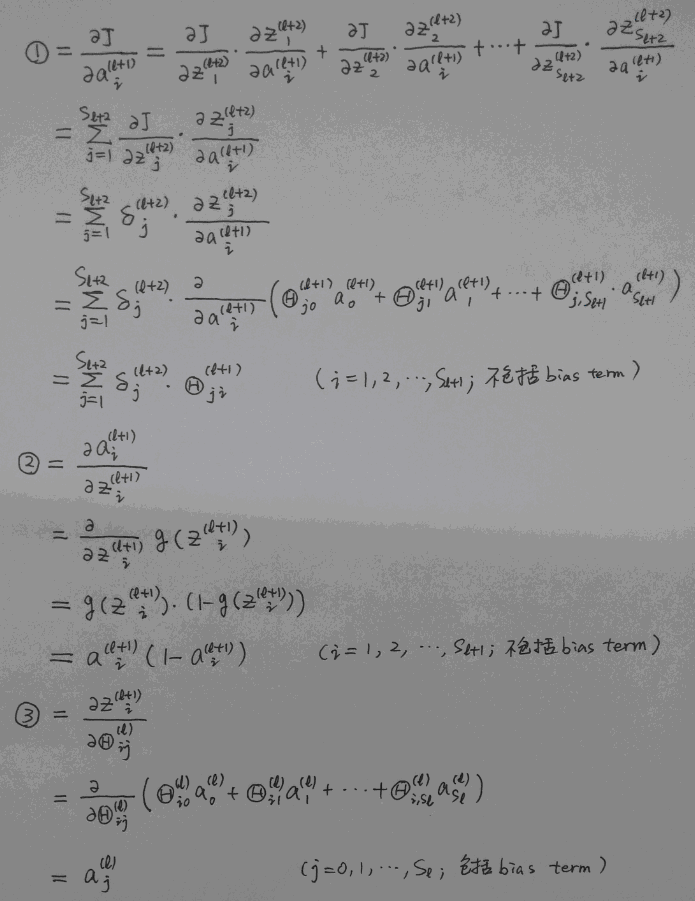 ① = ∂J/∂a_i^(ℓ+1) = ∂J/∂z_1^(ℓ+2) · ∂z_1^(ℓ+2)/∂a_i^(ℓ+1) + ∂J/∂z_2^(ℓ+2) · ∂z_2^(ℓ+2)/∂a_i^(ℓ+1) + ··· + ∂J/∂z_{S_{ℓ+2}}^(ℓ+2) · ∂z_{S_{ℓ+2}}^(ℓ+2)/∂a_i^(ℓ+1)
= Σ_{j=1}^{S_{ℓ+2}} ∂J/∂z_j^(ℓ+2) · ∂z_j^(ℓ+2)/∂a_i^(ℓ+1)
= Σ_{j=1}^{S_{ℓ+2}} δ_j^(ℓ+2) · ∂z_j^(ℓ+2)/∂a_i^(ℓ+1)
= Σ_{j=1}^{S_{ℓ+2}} δ_j^(ℓ+2) · ∂/∂a_i^(ℓ+1) (Θ_{j0}^(ℓ+1) a_0^(ℓ+1) + Θ_{j1}^(ℓ+1) a_1^(ℓ+1) + ··· + Θ_{j,S_{ℓ+1}}^(ℓ+1) · a_{S_{ℓ+1}}^(ℓ+1))
= Σ_{j=1}^{S_{ℓ+2}} δ_j^(ℓ+2) · Θ_{ji}^(ℓ+1) (i=1,2,···,S_{ℓ+1}; 不包括bias term)
② = ∂a_i^(ℓ+1)/∂z_i^(ℓ+1)
= ∂/∂z_i^(ℓ+1) g(z_i^(ℓ+1))
= g(z_i^(ℓ+1))·(1-g(z_i^(ℓ+1)))
= a_i^(ℓ+1) (1-a_i^(ℓ+1)) (i=1, 2, ···, S_{ℓ+1}; 不包括bias term)
③ = ∂z_i^(ℓ+1)/∂Θ_{ij}^(ℓ)
= ∂/∂Θ_{ij}^(ℓ) (Θ_{i0}^(ℓ) a_0^(ℓ) + Θ_{i1}^(ℓ) a_1^(ℓ) + ··· + Θ_{i,S_ℓ}^(ℓ) a_{S_ℓ}^(ℓ))
= a_j^(ℓ) (j=0,1,···,S_ℓ; 包括bias term)